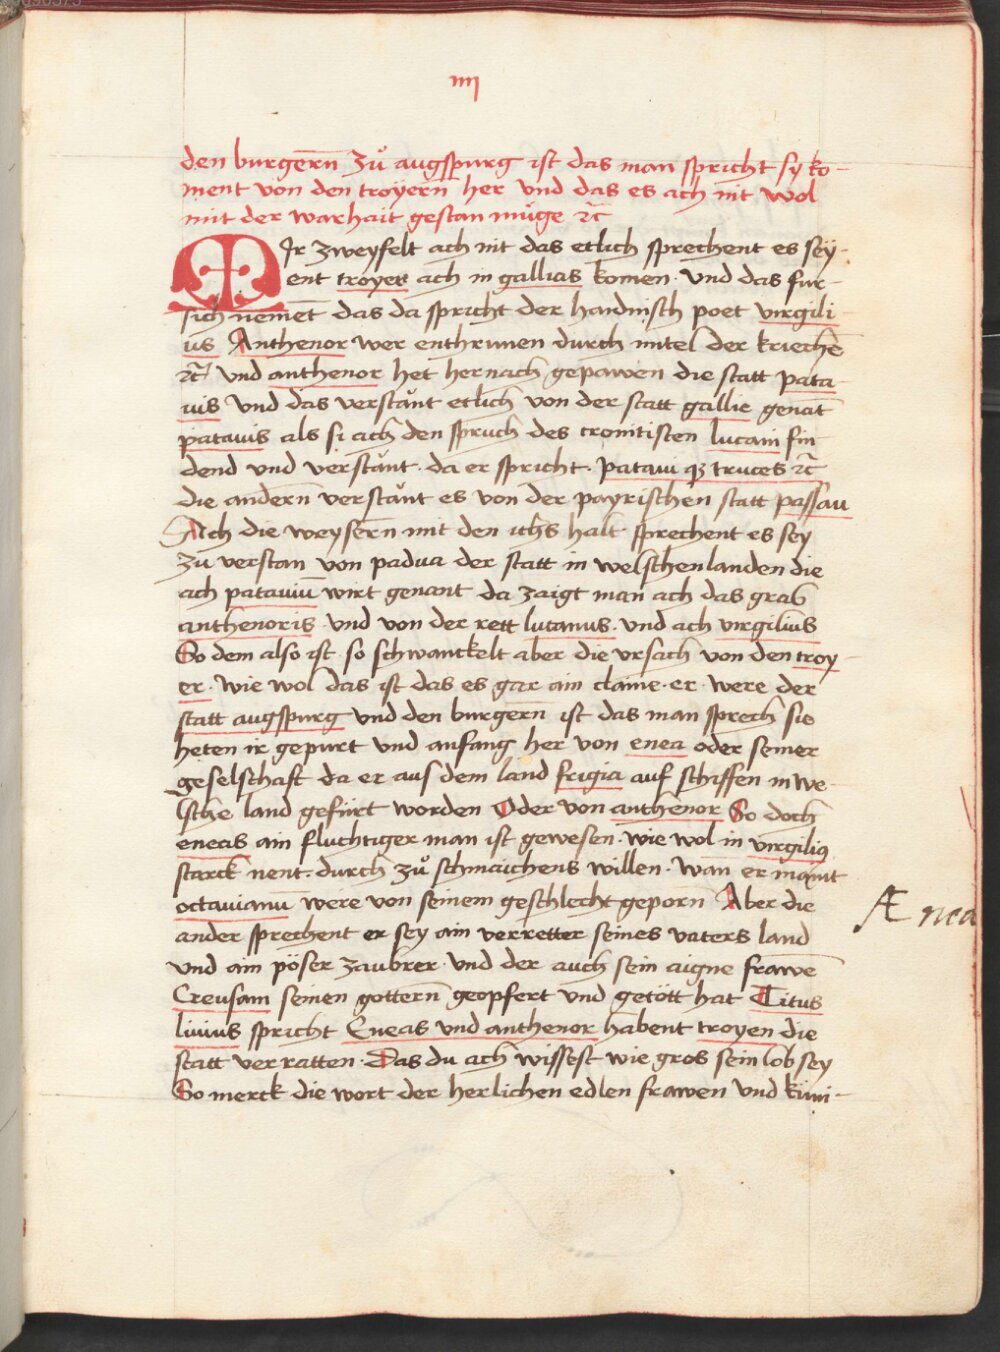 iiij
den burgern̄ zů augspurg ist das man spricht sy ko-
ment von den troÿern̄ her vnd das es ach nit wol
mit der warhait gestan můge ꝛc̄
MIr zweyfelt ach nit das etlich sprechent es seÿ-
ent troyer ach in gallias komen · vnd das fur-
sich nement das da spricht der haidnisch poet virgili
us Anthenor wer enthrunen durch mitel der kriechē
ꝛc̄ vnd anthenor het hernach gepawen die statt pata
uis vnd das verstänt etlich von der statt gallie genāt
patauis als si ach den spruch des cronitisten lucani fin
dend vnd verstänt · da er spricht · pataui qꝫ truces ꝛc̄
die andern̄ verstänt es von der payrischen statt passau
Ach die weysern̄ mit den ichs halt sprechent es sey
zu verstan von padua der statt in welschenlanden die
ach patauiū wirt genant da zaigt man ach das grab
anthenoris vnd von der rett lutanus · vnd ach virgilius
So dem also ist so schwanckelt aber die vrsach von den troy
er · wie wol das ist das es gar ain claine · er · were der
statt augspurg vnd den burgern̄ ist das man sprech sie
heten ir gepurt vnd anfang her von enea oder seiner
geselschaft da er aus dem land frigia auf schiffen in we-
lsche land gefürt worden Oder von anthenor So doch
eneas ain fluchtiger man ist gewesen · wie wol in virgiliꝰ
starck nent · durch zů schmaichens willen · wan er maint
octauianū were von seinem geschlecht geporn̄ Aber die
ander sprechent er sey ain verretter seines vaters land
vnd ain pöser zaubrer · vnd der auch sein aigne frawē
Creusam seinen gottern̄ geopfert vnd getött hat Titus
liuius spricht Eneas vnd anthenor habent troyen die
statt verratten · Das du ach wissest wie gros sein lob sey
So merck die wort der herlichen edlen frawen vnd küni-
Ænea